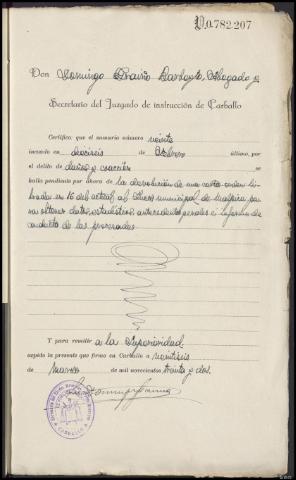 D.0.782.207
Don Domingo Abogado y
Secretario del Juzgado de instrucción de Carballo
Certifico: que el sumario número veinte
incoado en dieciseis de Febrero último, por
el delito de daños y coacciones se
halla pendiente por ahora de la devolución de una carta-orden li-
brada en 16 del actual al Juez municipal de Malpica pa-
ra obtener datos estadísticos, antecedentes penales e informe de
conducta de los procesados.
Y para remitir a la Superioridad
expido la presente que firmo en Carballo a veintiseis
de Marzo de mil novecientos treinta y dos.
CARBALLO